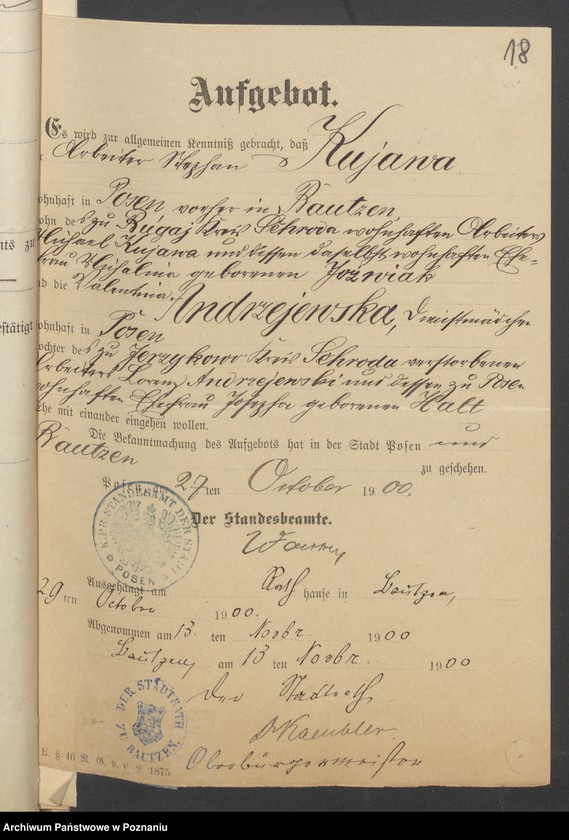 18
Aufgebot.
Es wird zur allgemeinen Kenntniß gebracht, daß
r Arbeiter Stephan Kujawa
ohnhaft in Posen vorher in Bautzen,
ohn des zu Rugaj Kreis Schroda wohnhaften Arbeiters
Michael Kujawa und dessen daselbst wohnhaften Ehe-
frau geborenen Jozwiak
nd die Valentina Andrzejewska, Dienstmädchen
ohnhaft in Posen
ochter des zu Jerzykowo Kreis Schroda verstorbenen
Arbeiters Lorenz Andrzejewski und dessen zu Posen
wohnhaften Ehefrau Josepha geborenen Halt
Ehe mit einander eingehen wollen.
Die Bekanntmachung des Aufgebots hat in der Stadt Posen und
Bautzen
zu geschehen.
Posen am 27ten October 1900.
Der Standesbeamte.
K. PR. STANDESAMT DER STADT POSEN
Ausgehängt am Rathhause in Bautzen,
29ten October 1900.
Abgenommen am 13. ten Novbr. 1900
Bautzen, am 13 ten Novbr. 1900
Der Stadtrath
DER STADTRATH ZU BAUTZEN.
Dr Kaeubler.
Oberbürgermeister
E. § 46 R. G. v. 6. 2. 1875
nts zu
estätigt
Archiwum Państwowe w Poznaniu